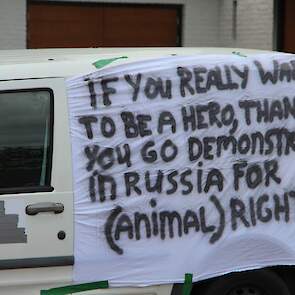 IF YOU REALLY WA
TO BE A HERO, THAN
YOU GO DEMONSTR
in RUSSIA FOR
(AnimAL) RIGHT